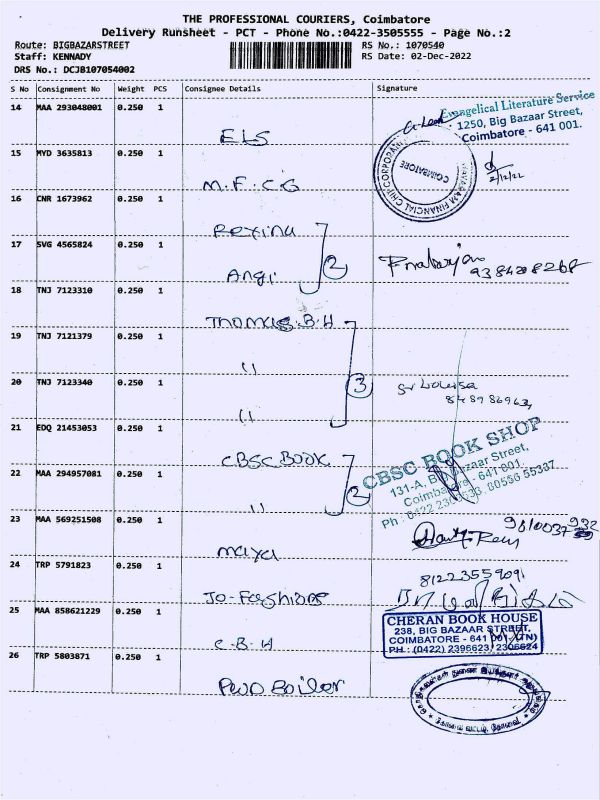 THE PROFESSIONAL COURIERS, Coimbatore
Delivery Runsheet - PCT - Phone No.:0422-3505555 - Page No.:2
Route: BIGBAZARSTREET
RS No.: 1070540
Staff: KENNADY
RS Date: 02-Dec-2022
DRS No.: DCJB107054002
S No Consignment No Weight PCS Consignee Details Signature
14 MAA 293048001 0.250 1 ELS
Evangelical Literature Service
1250, Big Bazaar Street,
Coimbatore - 641 001.
15 MYD 3635813 0.250 1 M.F.C.G
COIMBATORE
2/12/22
16 CNR 1673962 0.250 1 Rexina
17 SVG 4565824 0.250 1 Angi
2
9384208268
18 TNJ 7123310 0.250 1 Thomas.B.H
19 TNJ 7121379 0.250 1 "
20 TNJ 7123340 0.250 1 "
3
21 EDQ 21453053 0.250 1 CBSC BOOK
22 MAA 294957081 0.250 1 "
2
CBSC BOOK SHOP
131-A, Big Bazaar Street,
Coimbatore - 641 001.
23 MAA 569251508 0.250 1 Maya
24 TRP 5791823 0.250 1 Jo-Fashions
81223559091
25 MAA 858621229 0.250 1 C.B.H
CHERAN BOOK HOUSE
238, BIG BAZAAR STREET,
COIMBATORE - 641 001. (TN)
PH.: (0422) 2396623, 2306624
26 TRP 5803871 0.250 1 PWD Boiler